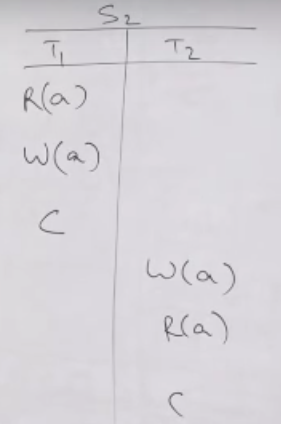 S2
T1 T2
R(a)
W(a)
C
W(a)
R(a)
C